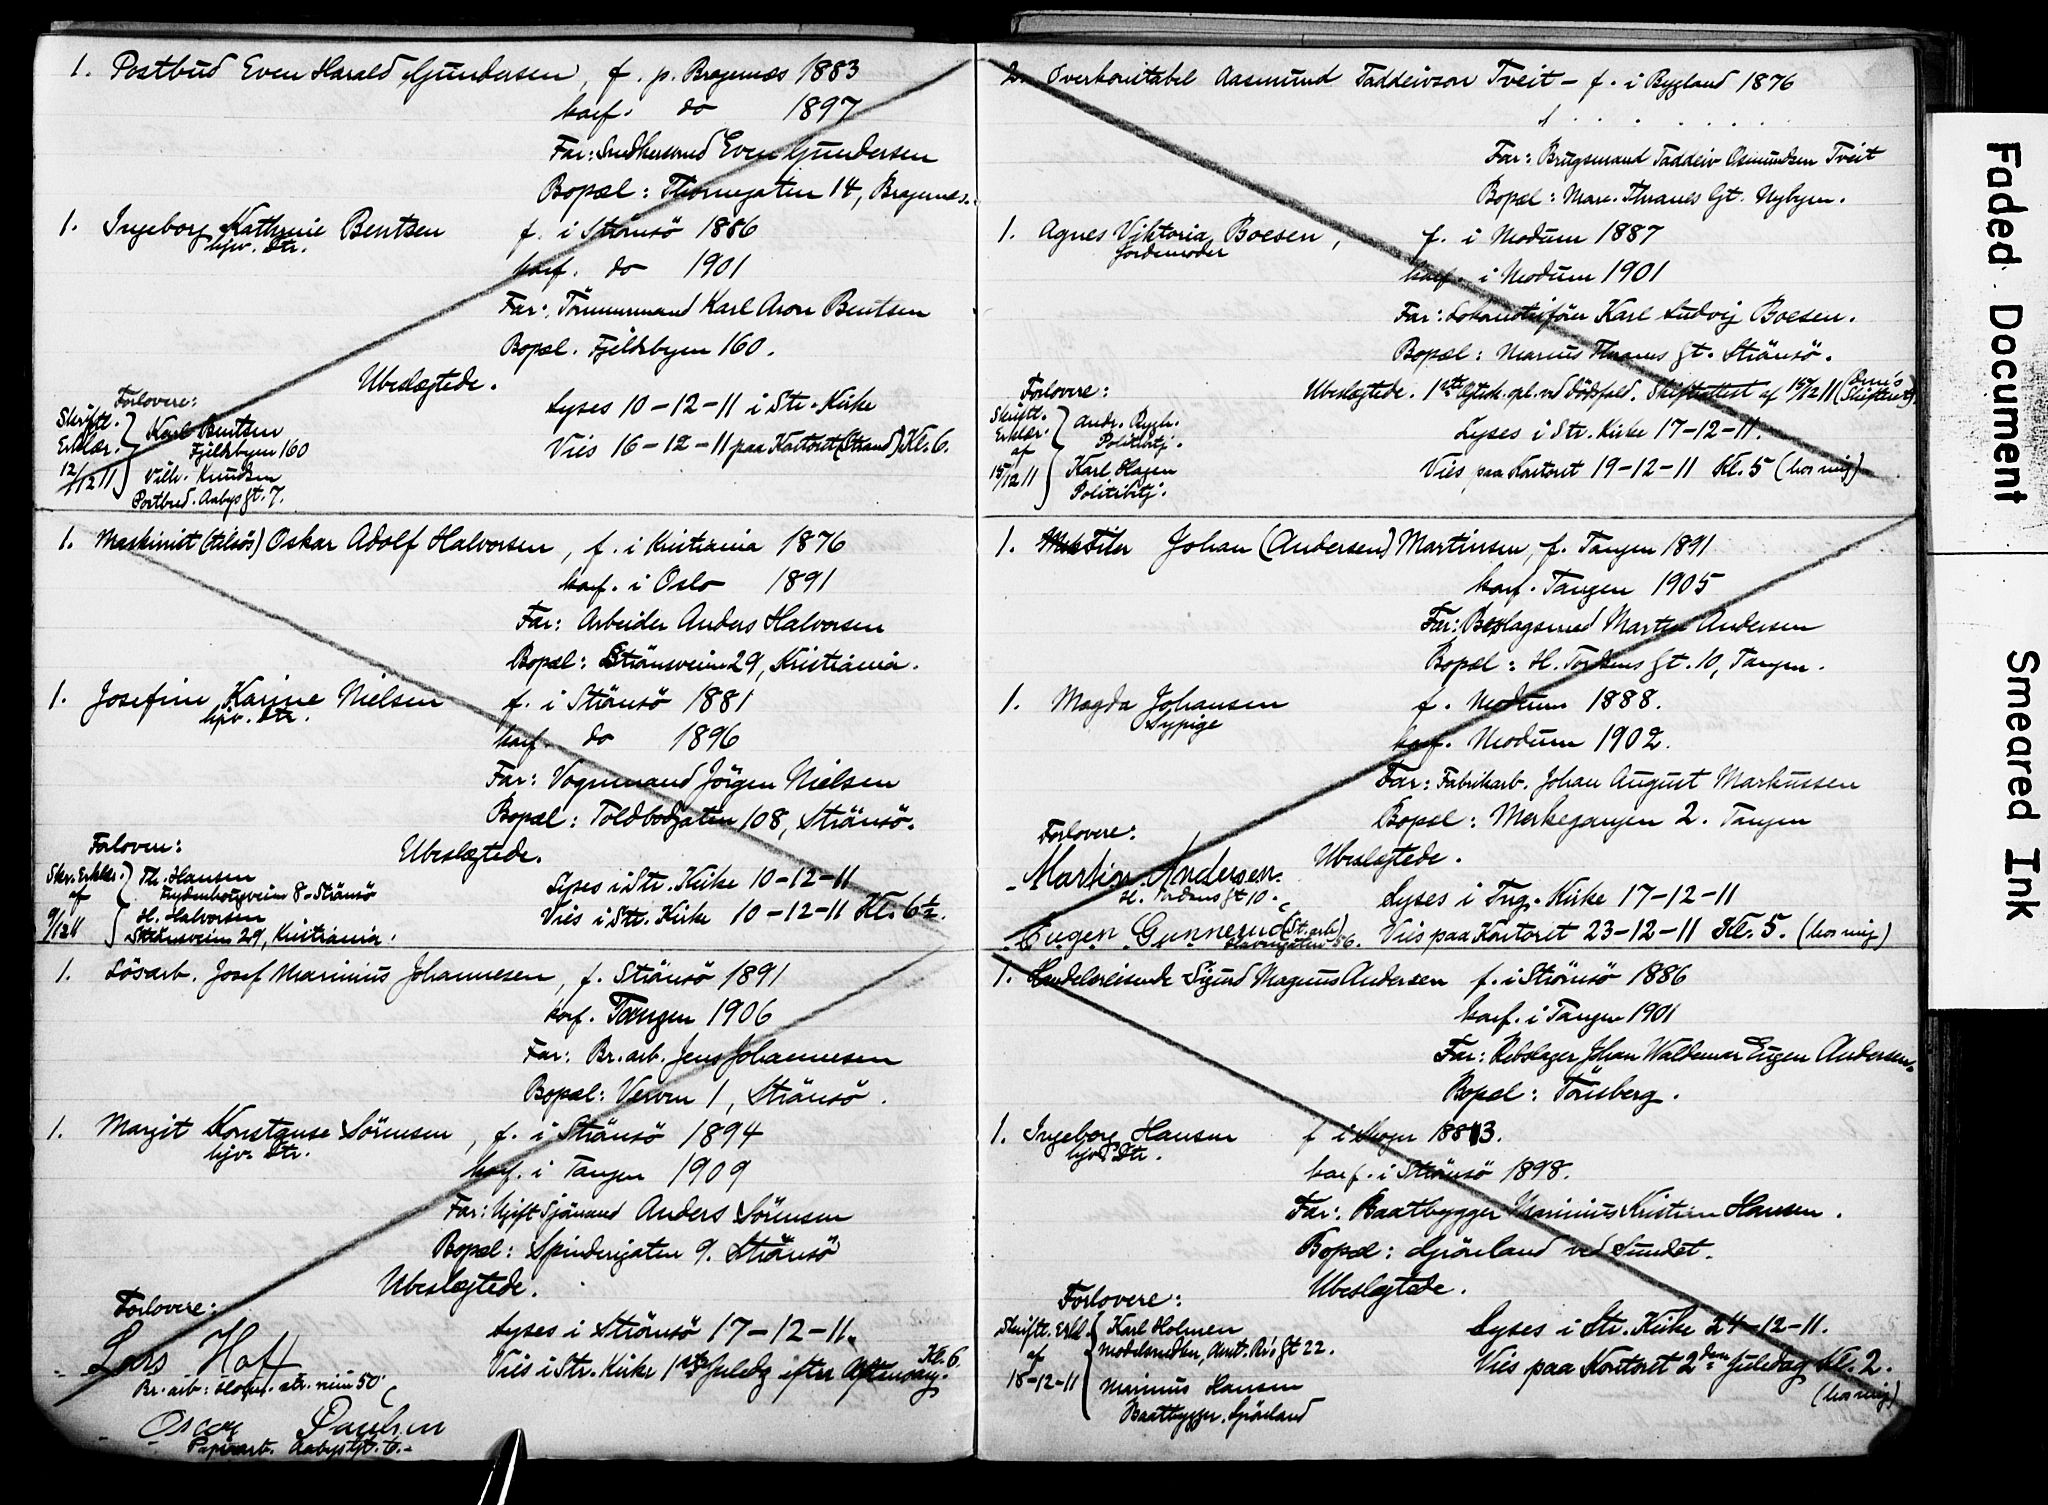 1. Postbud Even Harald Gundersen, f. p. Bragernæs 1883
konf. do 1897
Far: Even Gundersen
Bopæl: Thornegaten 14, Bragernæs.
1. Ingeborg Kathrine Bentsen f. i Strömsö 1886
hjv. Str. konf. do 1901
Far: Tömmermand Karl Aron Bentsen
Bopæl. Fjeldbyen 160.
Ubeslægtede.
Forlovere:
Skriftl. Erklær. 12/12 11
Karl Bentsen
Fjeldbyen 160
Vilh. Knudsen
Postbud. Aabys gt. 7.
Lyses 10-12-11 i Str. Kirke
Vies 16-12-11 paa Kontoret (Strand) Kl. 6.
1. Maskinist (tilsös) Oskar Adolf Halvorsen, f. i Kristiania 1876
konf. i Oslo 1891
Far: Arbeider Anders Halvorsen
Bopæl: Strömsveien 29, Kristiania.
1. Josefine Karine Nielsen f. i Strömsö 1881
hjv. Str.
konf. do 1896
Far: Vognmand Jörgen Nielsen
Bopæl: Toldbodgaten 108, Strömsö.
Forlovere:
Ubeslægtede.
Skr. Erklær. af 9/12 11
Th. Hansen
Frydenborgveien 8. Strömsö
H. Halvorsen
Strömsveien 29, Kristiania.
Lyses i Str. Kirke 10-12-11
Vies i Str. Kirke 10-12-11 Kl. 6½.
1. Lösarb. Josef Marinius Johannesen, f. Strömsö 1891
konf. Tangen 1906
Far: Br. arb. Jens Johannesen
Bopæl: Verven 1, Strömsö.
1. Margit Konstanse Sörensen, f. i Strömsö 1894
hjv. Str.
konf. i Tangen 1909
Far: Anders Sörensen
Bopæl: Spinderigaten 9. Strömsö
Ubeslægtede.
Forlovere:
Lars Hoff
Br. arb:
Oscar Paulsen
Papirarb. Aabys gt. 6.
Lyses i Strömsö 17-12-11.
Vies i Str. Kirke 1ste Juledg efter Aftensang. Kl. 6.
2. Overkonstabel Aasmund Taddeivson Tveit - f. i Bygland 1876
Far: Brugsmand Taddeiv Osmundsen Tveit
Bopæl: Marc. Thranes Gt. Nybyen.
1. Agnes Viktoria Boesen, f. i Modum 1887
Jordemoder
konf. i Modum 1901
Far: Lokomotivförer Karl Ludvig Boesen.
Bopæl: Marius Thranes gt. Strömsö.
Forlovere:
Ubeslægtede. 1ste Ægtesk. opl. ved Dödsfald. Skifteattest af 15/12 11
Skriftl. Erklær. af 15/12 11
Andr. Rygh.
Politibtj.
Karl Hagen
Politibtj.
Lyses i Str. Kirke 17-12-11.
Vies paa Kontoret 19-12-11 Kl. 5 (hos mig)
1. Johan (Andersen) Martinsen, f. Tangen 1891
konf. Tangen 1905
Far: Beslagsmed Martin Andersen
Bopæl: H. Tordens gt. 10, Tangen.
1. Magda Johansen f. Modum 1888.
Sypige
konf. Modum 1902.
Far: Fabrikarb. Johan August Markussen
Bopæl: Merkegangen 2. Tangen
Forlovere:
Ubeslægtede.
Martin Andersen
H. Tordens gt 10.
Eugen Gunnerud (St. arb)
Havnegaten 56.
Lyses i Tng. Kirke 17-12-11
Vies paa Kontoret 23-12-11 Kl. 5. (hos mig)
1. Handelsreisende Sigurd Magnus Andersen f. i Strömsö 1886
konf. i Tangen 1901
Far: Rebslager Johan Waldemar Eugen Andersen.
Bopæl: Tönsberg.
1. Ingeborg Hansen f i Skoger 1883.
hjv. Str.
konf. i Strömsö 1898.
Far: Baatbygger Marinius Kristian Hansen.
Bopæl: Grönland ved Sundet.
Ubeslægtede.
Forlovere:
Skriftl. Erkl. af 18-12-11
Karl Holmen
Modelsnedker, Amt. Ris gt 22.
Marinius Hansen
Baatbygger. Grönland
Lyses i Str. Kirke 24-12-11.
Vies paa Kontoret 2den Juledag Kl. 2.
(hos mig)
Faded Document
Smeared Ink